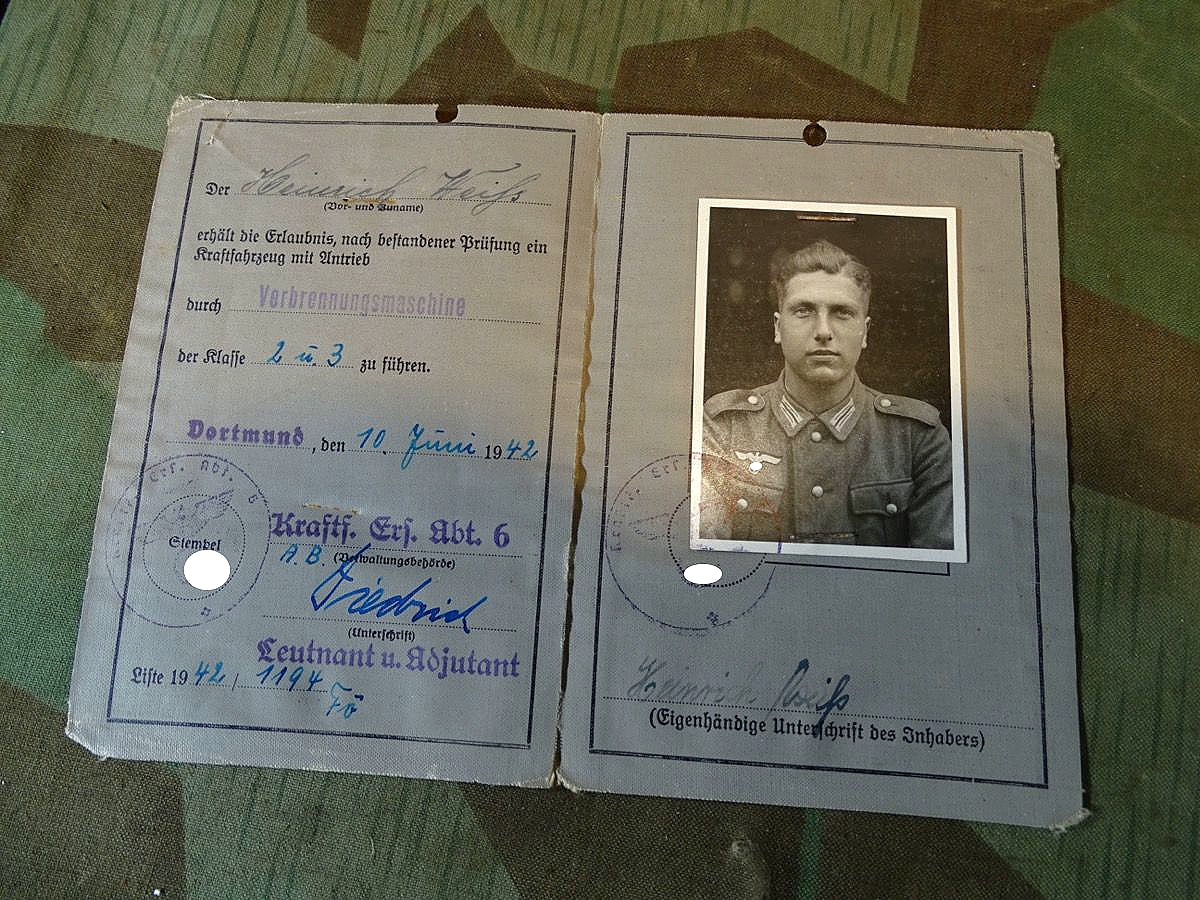 Der Heinrich Weiß
(Vor- und Zuname)
erhält die Erlaubnis, nach bestandener Prüfung ein
Kraftfahrzeug mit Antrieb
durch Verbrennungsmaschine
der Klasse 2 u. 3 zu führen.
Dortmund, den 10. Juni 1942
Ers. Abt. 6
Stempel
Kraftf. Ers. Abt. 6
A.B. (Verwaltungsbehörde)
Friedrich
(Unterschrift)
Leutnant u. Adjutant
Liste 1942 / 1194
Fö
Heinrich Weiß
(Eigenhändige Unterschrift des Inhabers)